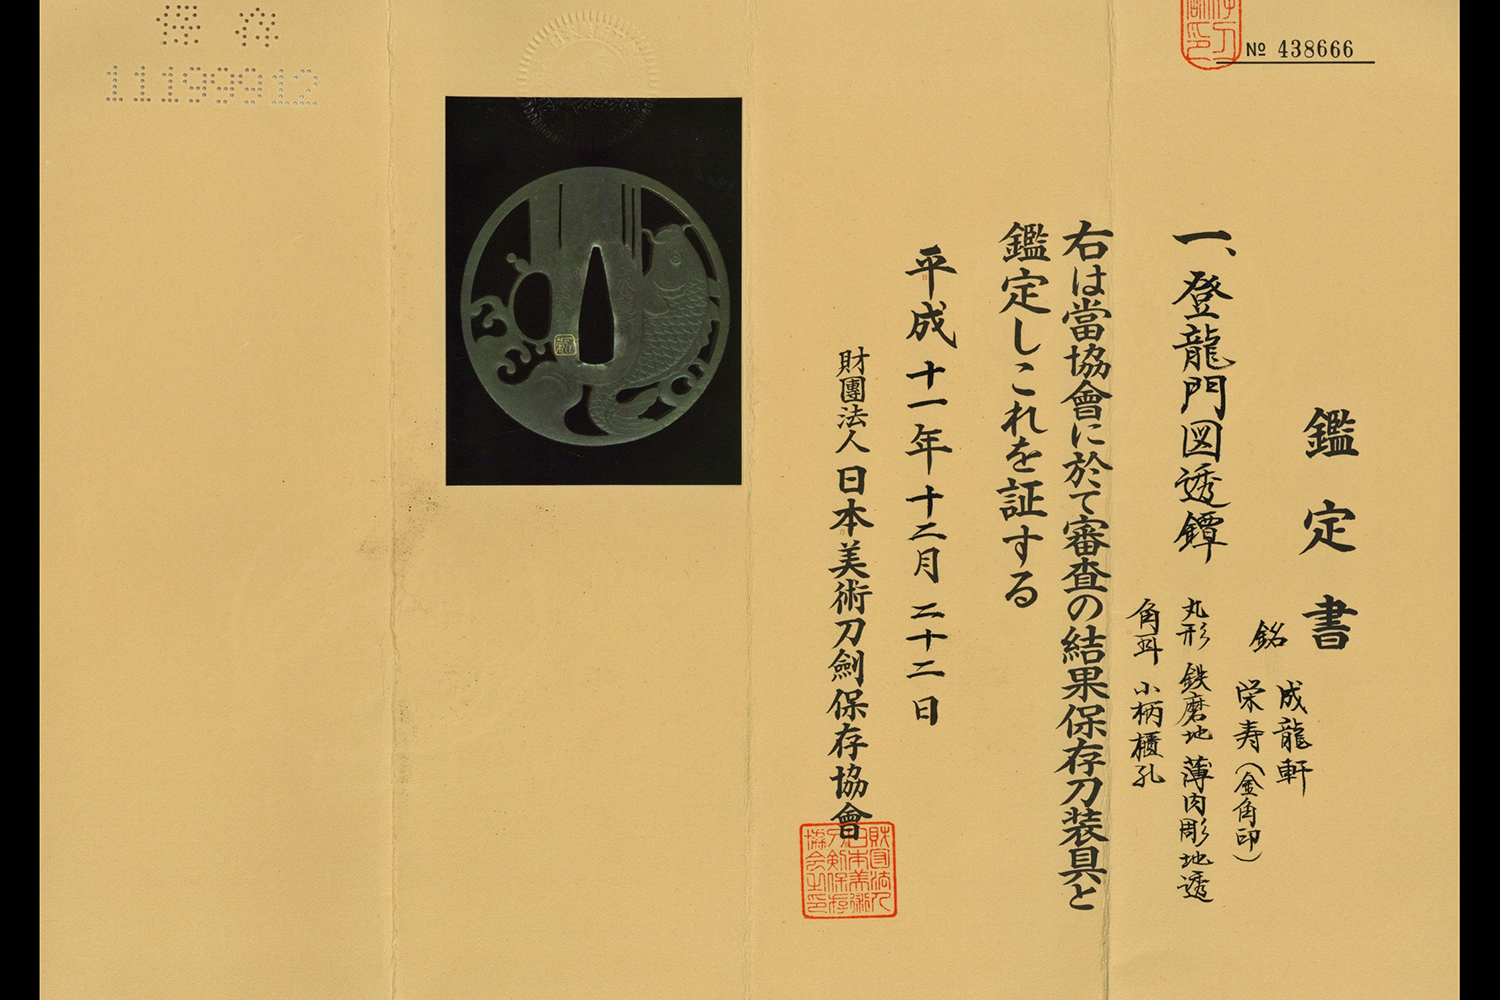 保存
11199912
№ 438666
鑑定書
一、登龍門図透鐔
銘 成龍軒
栄寿(金角印)
丸形 鉄磨地 薄肉彫地透
角耳 小柄櫃孔
右は當協會に於て審査の結果保存刀装具と
鑑定しこれを証する
平成十一年十二月二十二日
財團法人日本美術刀劍保存協會
財団法人
日本美術
刀剣保存
協会之印